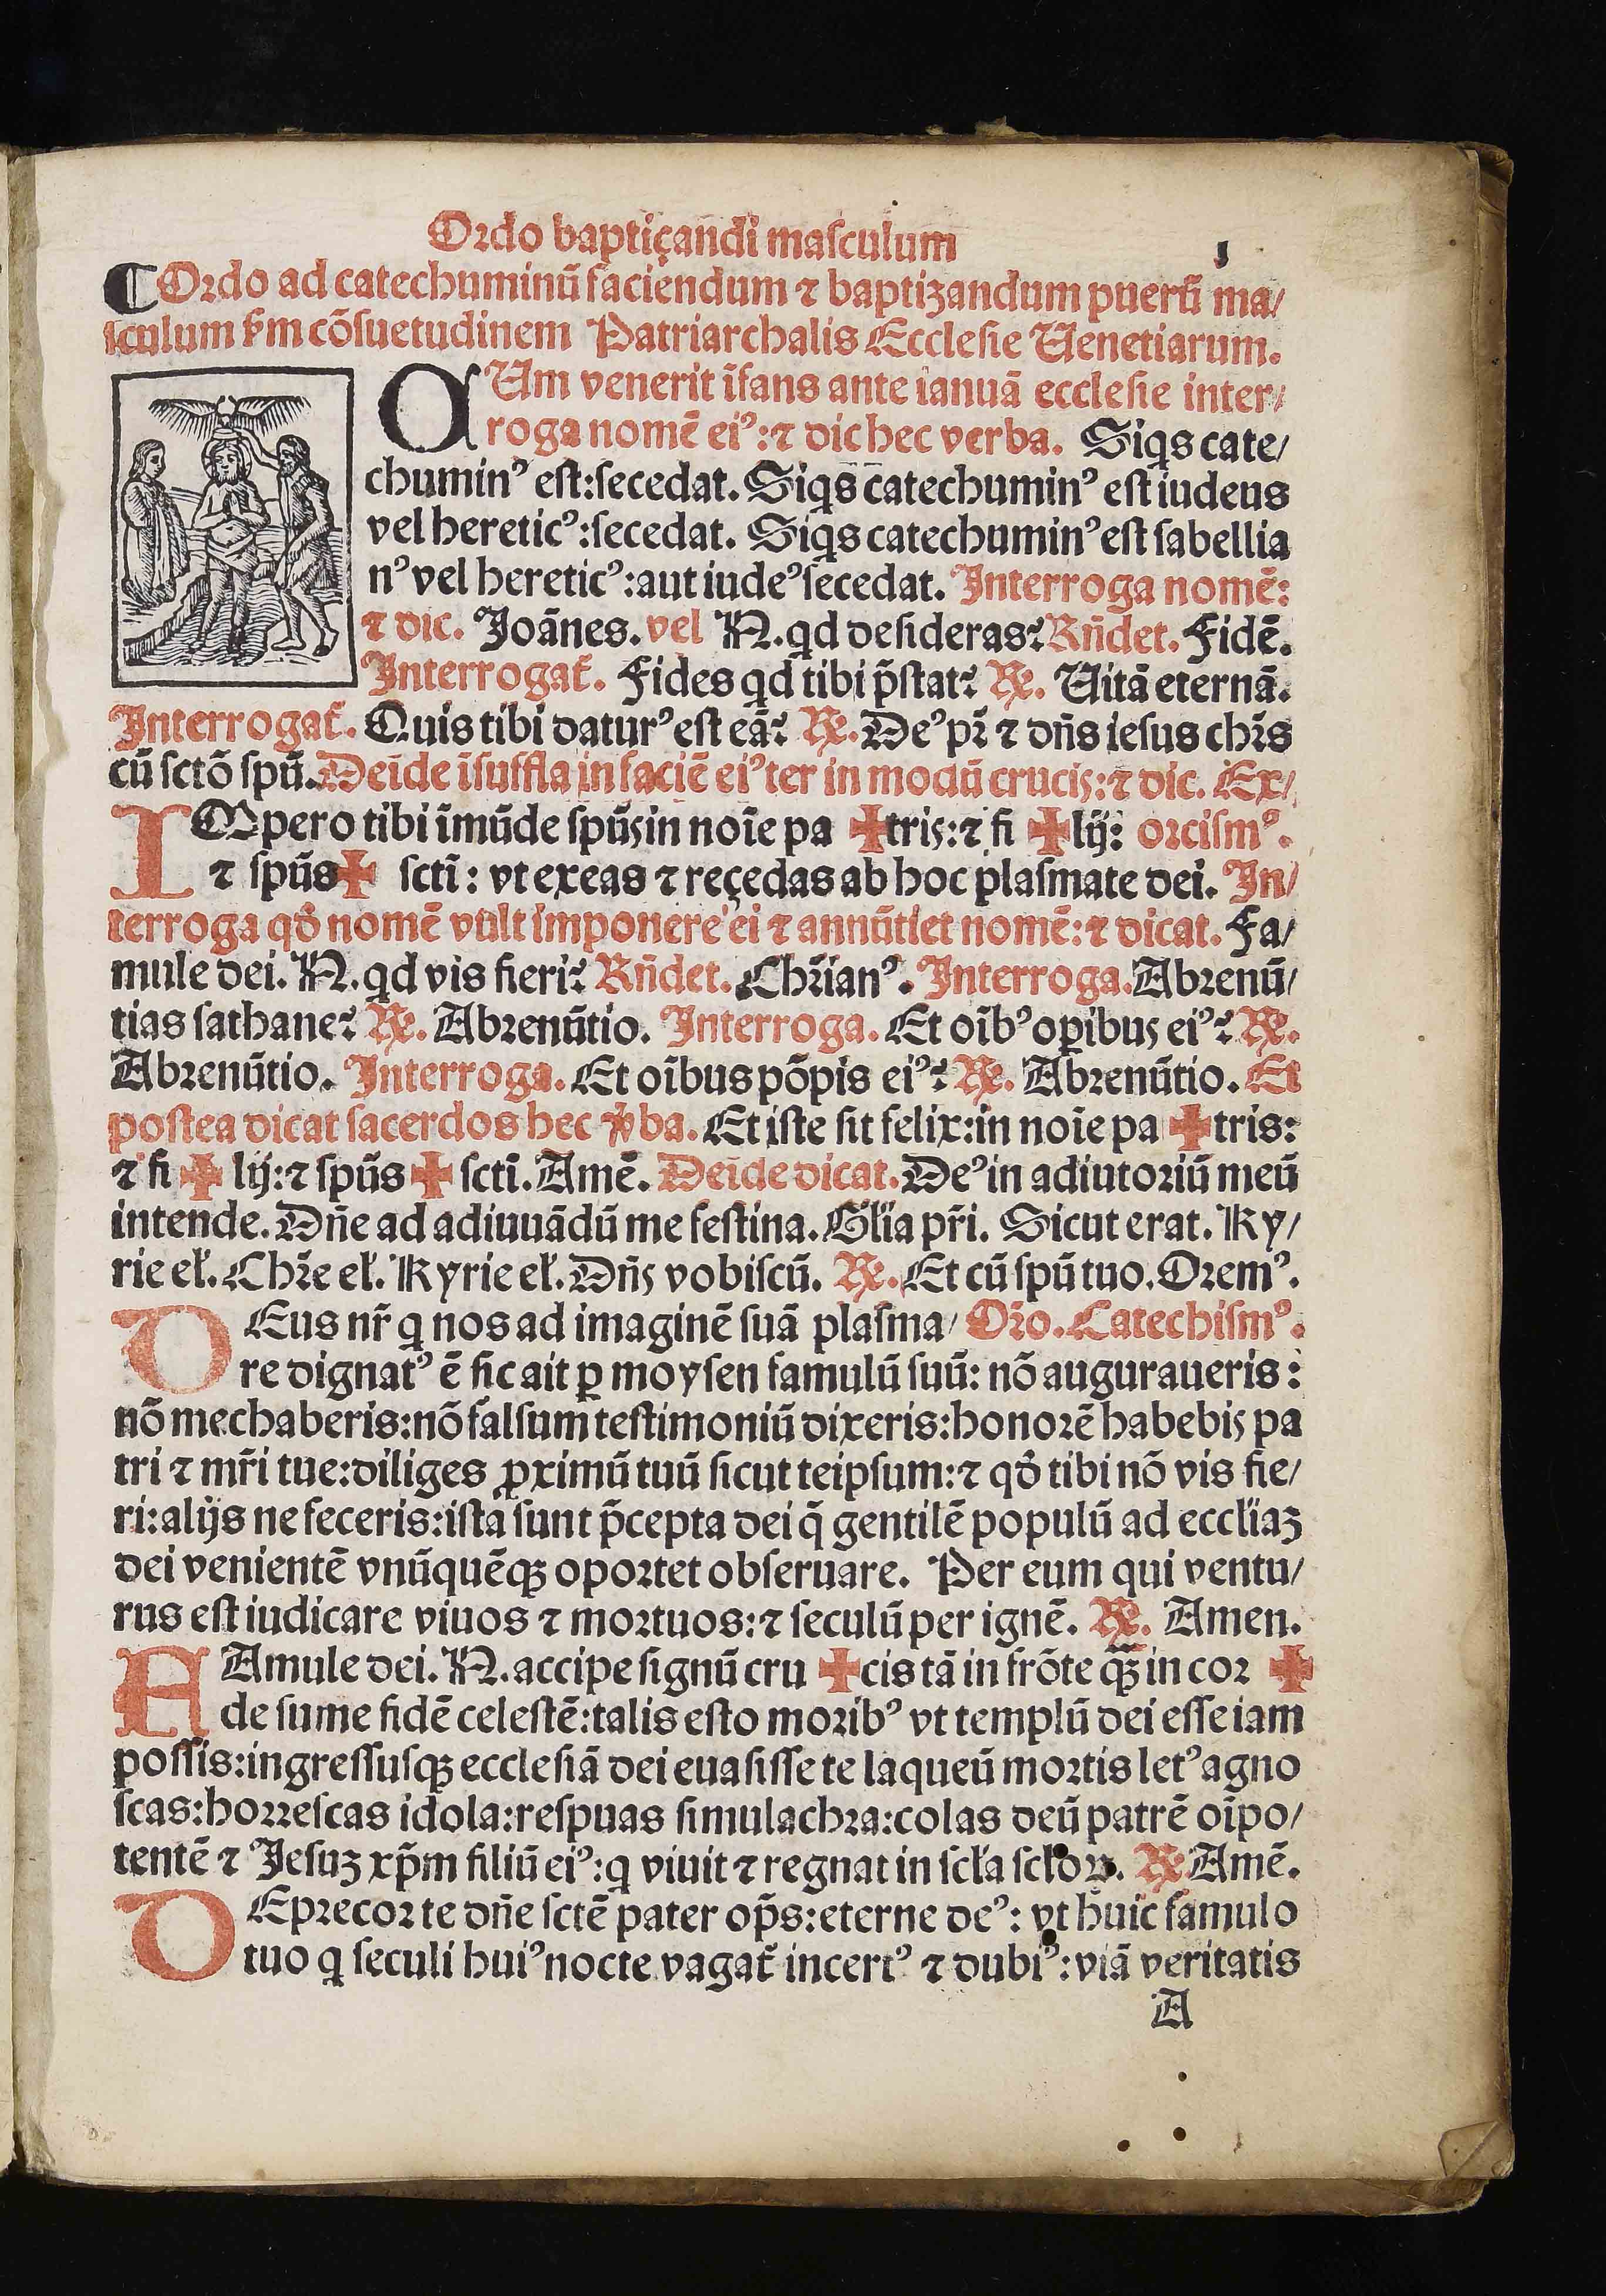 Ordo baptiçandi masculum
1
¶Ordo ad catechuminū faciendum ⁊ baptizandum puerū ma/
sculum ẜm cōsuetudinem Patriarchalis Ecclesie Uenetiarum.
QUm venerit īfans ante ianuā ecclesie inter/
roga nomē eiꝰ:⁊ dic hec verba. Siqͥs cate/
chuminꝰ est:secedat. Siqͥs catechuminꝰ est iudeus
vel hereticꝰ:secedat. Siqͥs catechuminꝰ est sabellia
nꝰ vel hereticꝰ:aut iudeꝰ secedat. Interroga nomē:
⁊ dic. Joānes. vel N. qͥd desideras? Rñdet. Fidē.
Interrogat̄. Fides qͥd tibi p̄stat? ℞. Uitā eternā.
Interrogat̄. Quis tibi daturꝰ est eā? ℞. Deꝰ pr̄ ⁊ dñs iesus chr̄s
cū sctō spū. Deīde īsuffla in faciē eiꝰ ter in modū crucis:⁊ dic. Ex/
IMpero tibi īmūde spūs in noīe pa ✠ tris:⁊ fi ✠ lij: orcismꝰ.
⁊ spūs ✠ sctī: vt exeas ⁊ reçedas ab hoc plasmate dei. In/
terroga qđ nomē vult imponere ei ⁊ annūtiet nomē:⁊ dicat. Fa/
mule dei. N. qͥd vis fieri? Rñdet. Chr̄ianꝰ. Interroga. Abrenū/
tias sathane? ℞. Abrenūtio. Interroga. Et oībꝰ oꝑibus eiꝰ? ℞.
Abrenūtio. Interroga. Et oībus pōpis eiꝰ? ℞. Abrenūtio. Et
postea dicat sacerdos hec v̄ba. Et iste sit felix:in noīe pa ✠ tris:
⁊ fi ✠ lij:⁊ spūs ✠ sctī. Amē. Deīde dicat. Deꝰ in adiutoriū meū
intende. Dñe ad adiuuādū me festina. Gl̄ia pr̄i. Sicut erat. Ky/
rie eł. Chr̄e eł. Kyrie eł. Dñs vobiscū. ℞. Et cū spū tuo. Oremꝰ.
DEus nr̄ q nos ad imaginē suā plasma/ Or̄o. Catechismꝰ.
re dignatꝰ ē sic ait ꝑ moysen famulū suū: nō auguraueris:
nō mechaberis:nō falsum testimoniū dixeris:honorē habebis pa
tri ⁊ mr̄i tue:diliges ꝓximū tuū sicut teipsum:⁊ qđ tibi nō vis fie/
ri:alijs ne feceris:ista sunt p̄cepta dei q̄ gentilē populū ad eccl̄iaꝫ
dei venientē vnūquēqꝫ oportet obseruare. Per eum qui ventu/
rus est iudicare viuos ⁊ mortuos:⁊ seculū per ignē. ℞. Amen.
FAmule dei. N. accipe signū cru ✠ cis tā in frōte qꝫ̄ in cor ✠
de sume fidē celestē:talis esto moribꝰ vt templū dei esse iam
possis:ingressusqꝫ ecclesiā dei euasisse te laqueū mortis letꝰ agno
scas:horrescas idola:respuas simulachra:colas deū patrē oīpo/
tentē ⁊ Jesuꝫ xp̄m filiū eiꝰ:q viuit ⁊ regnat in scła scłoꝝ. ℞ Amē.
DEprecor te dñe sctē pater op̄s:eterne deꝰ: vt huic famulo
tuo q seculi huiꝰ nocte vagat̄ incertꝰ ⁊ dubiꝰ:viā veritatis
A